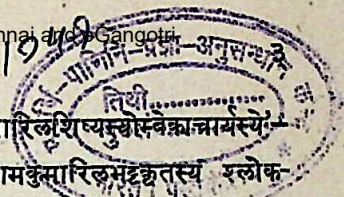 nnai and eGangotri
पाणिनि-प्रज्ञा-अनुसन्धान
तिथी..............
ारिलशिष्यस्योम्वेकाचार्यस्ये,—
ामकुमारिलभट्टकृतस्य श्लोक-